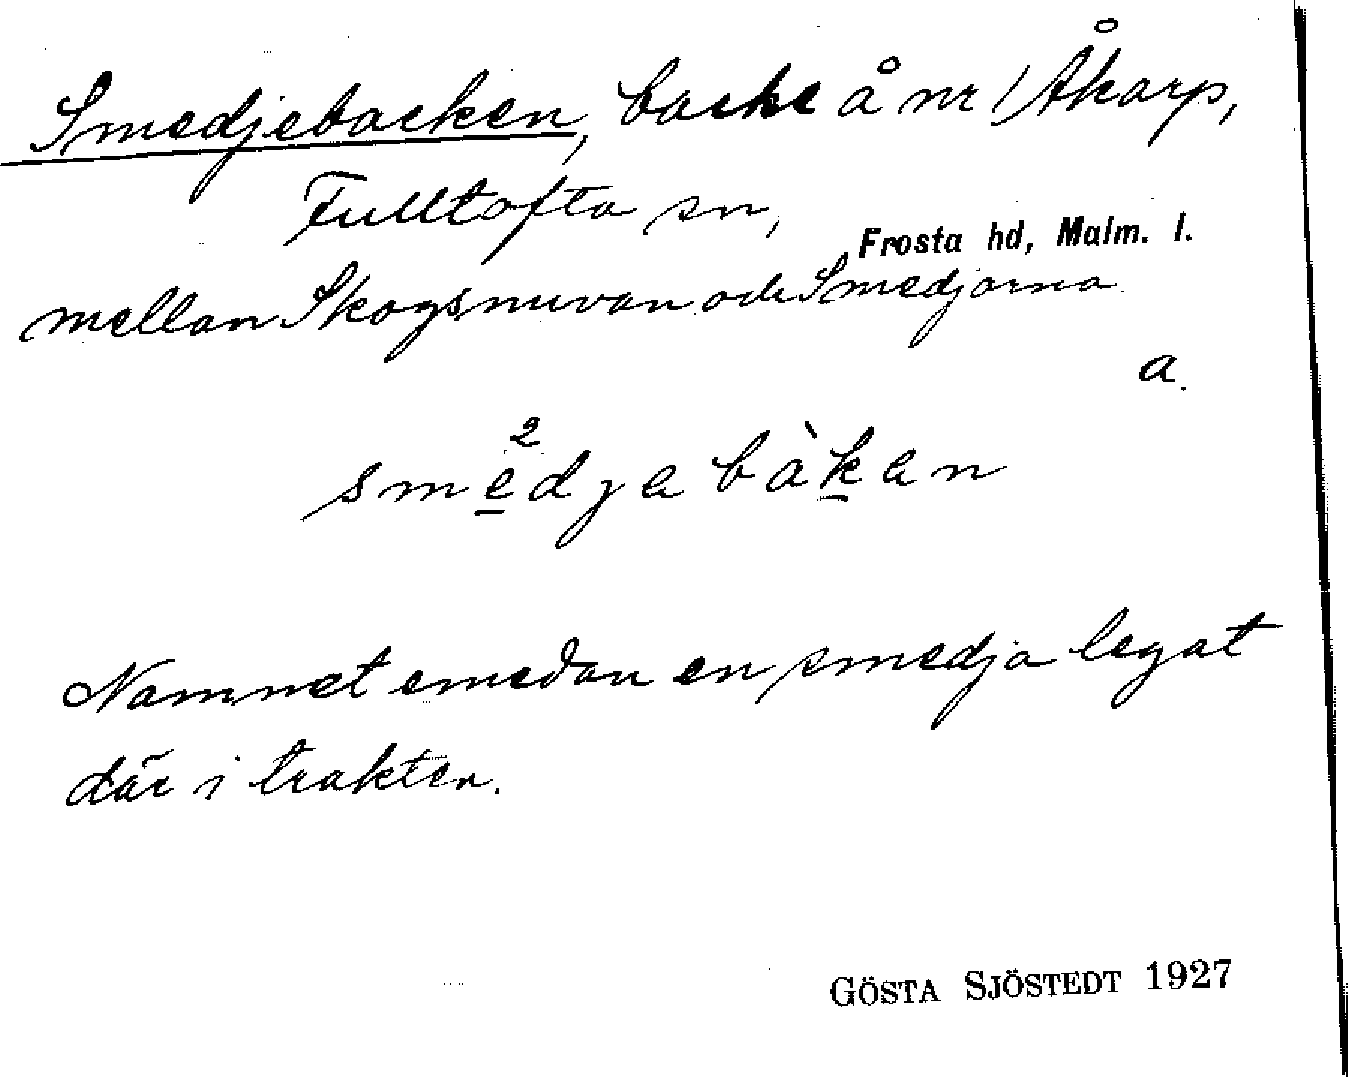 Smedjebacken, backe å nr 1 Åkarp,
Fulltofta sn,
Frosta hd, Malm. l.
mellan Skogsnuvan och Smedjorna
a.
sme²djabàkan
Namnet emedan en smedja legat
där i trakten.
GÖSTA SJÖSTEDT 1927